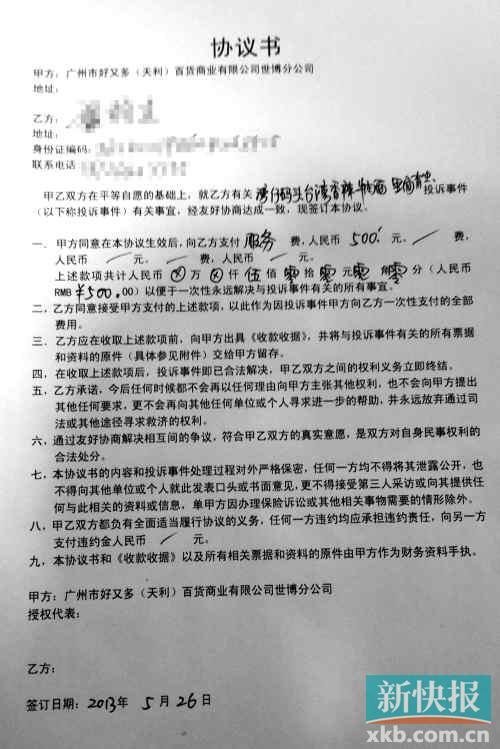 协议书
甲方：广州市好又多（天利）百货商业有限公司世博分公司
地址：
乙方：
地址：
身份证编码：
联系电话
甲乙双方在平等自愿的基础上，就乙方有关湾仔码头台湾香辣牛肉面里面有虫投诉事件
（以下称投诉事件）有关事宜，经友好协商达成一致，现签订本协议。
一、甲方同意在本协议生效后，向乙方支付 服务 费，人民币 500 元、 / 费，
人民币 / 元。 / 费，人民币 / 元。
上述款项共计人民币 ⊗ 万 ⊗ 仟 伍 佰 零 拾 零 元 零 角 零 分（人民币
RMB ¥500.00）以便于一次性永远解决与投诉事件有关的所有事宜。
二，乙方同意接受甲方支付的上述款项，以此作为因投诉事件甲方向乙方一次性支付的全部
费用。
三、乙方应在收取上述款项前，向甲方出具《收款收据》，并将与投诉事件有关的所有票据
和资料的原件（具体参见附件）交给甲方留存。
四、在收取上述款项后，投诉事件即已合法解决，甲乙双方之间的权利义务立即终结。
五、乙方承诺，今后任何时候都不会再以任何理由向甲方主张其他权利，也不会向甲方提出
其他任何要求，更不会再向其他任何单位或个人寻求进一步的帮助，并永远放弃通过司
法或其他途径寻求救济的权利。
六、通过友好协商解决相互间的争议，符合甲乙双方的真实意愿，是双方对自身民事权利的
合法处分。
七、本协议书的内容和投诉事件处理过程对外严格保密，任何一方均不得将其泄露公开，也
不得向其他单位或个人就此发表口头或书面意见，更不得接受第三人采访或向其提供任
何与此相关的资料或信息，单甲方因办理保险诉讼或其他相关事物需要的情形除外。
八，甲乙双方都负有全面适当履行协议的义务，任何一方违约均应承担违约责任，向另一方
支付违约金人民币 / 元。
九，本协议书和《收款收据》以及所有相关票据和资料的原件由甲方作为财务资料手执。
甲方：广州市好又多（天利）百货商业有限公司世博分公司
授权代表：
乙方：
签订日期：2013年 5 月 26 日
新快报
xkb.com.cn